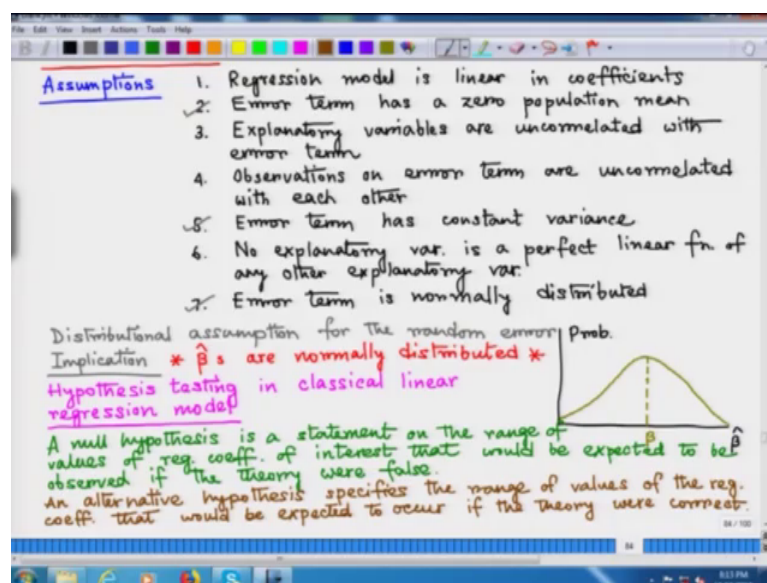 File Edit View Insert Actions Tools Help
Assumptions 1. Regression model is linear in coefficients
2. Error term has a zero population mean
3. Explanatory variables are uncorrelated with
error term
4. Observations on error term are uncorrelated
with each other
5. Error term has constant variance
6. No explanatory var. is a perfect linear fn. of
any other explanatory var.
7. Error term is normally distributed
Distributional assumption for the random error
Prob.
Implication * β̂s are normally distributed *
Hypothesis testing in classical linear
regression model
β
β̂
A null hypothesis is a statement on the range of
values of reg. coeff. of interest that would be expected to be
observed if the theory were false.
An alternative hypothesis specifies the range of values of the reg.
coeff. that would be expected to occur if the theory were correct.
84 / 100
84
8:13 PM